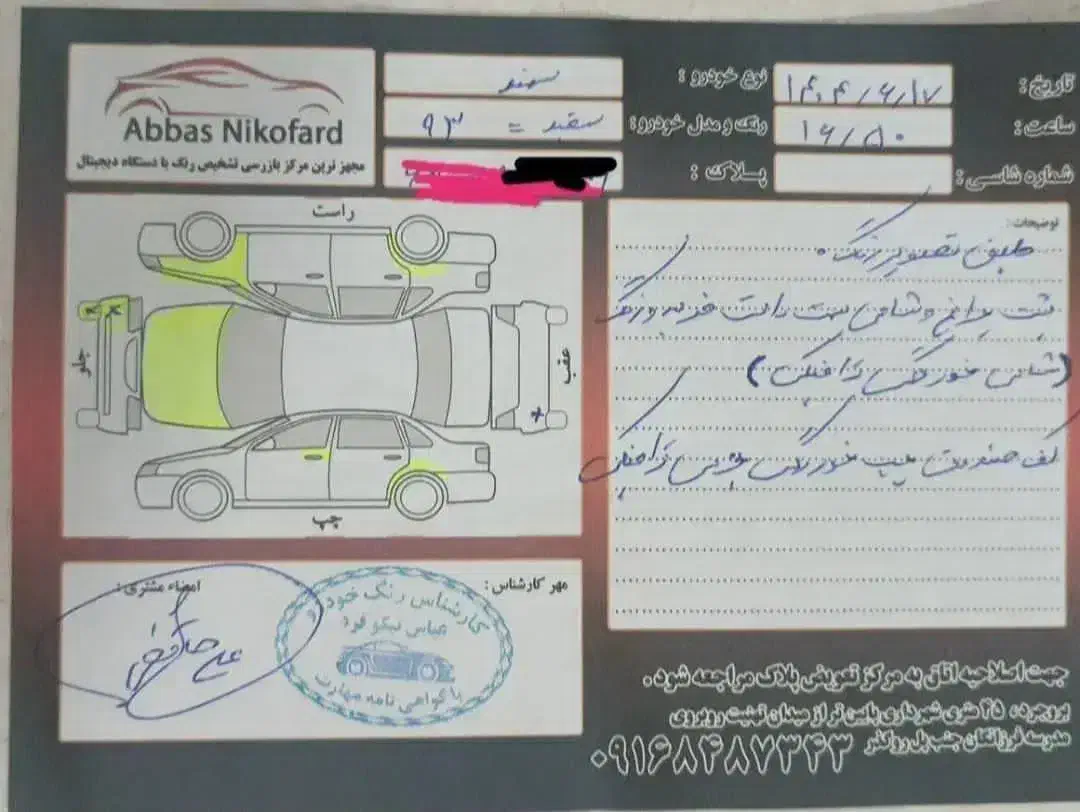 Abbas Nikofard
مجهز ترین مرکز بازرسی تشخیص رنگ با دستگاه دیجیتال
تاریخ: ۱۴۰۴/۶/۱۷
ساعت: ۱۶/۵۰
شماره شاسی:
نوع خودرو: سمند
رنگ و مدل خودرو: سفید = ۹۳
پلاک:
راست
جلو
عقب
چپ
توضیحات:
طبق تصویر رنگ.
شاسی راست ضربه و رنگ
(شاسی خوردگی دارد)
کف صندوق عقب خوردگی
مهر کارشناس:
امضاء مشتری:
کارشناس رنگ خودرو
عباس نیکو فرد
با گواهی نامه مهارت
جهت اصلاحیه اتاق به مرکز تعویض پلاک مراجعه شود.
بروجرد، ۴۵ متری شهرداری پایین تر از میدان تهنیت روبروی
مدرسه فرزانگان جنب پل روگذر
۰۹۱۶۸۴۸۷۳۴۳